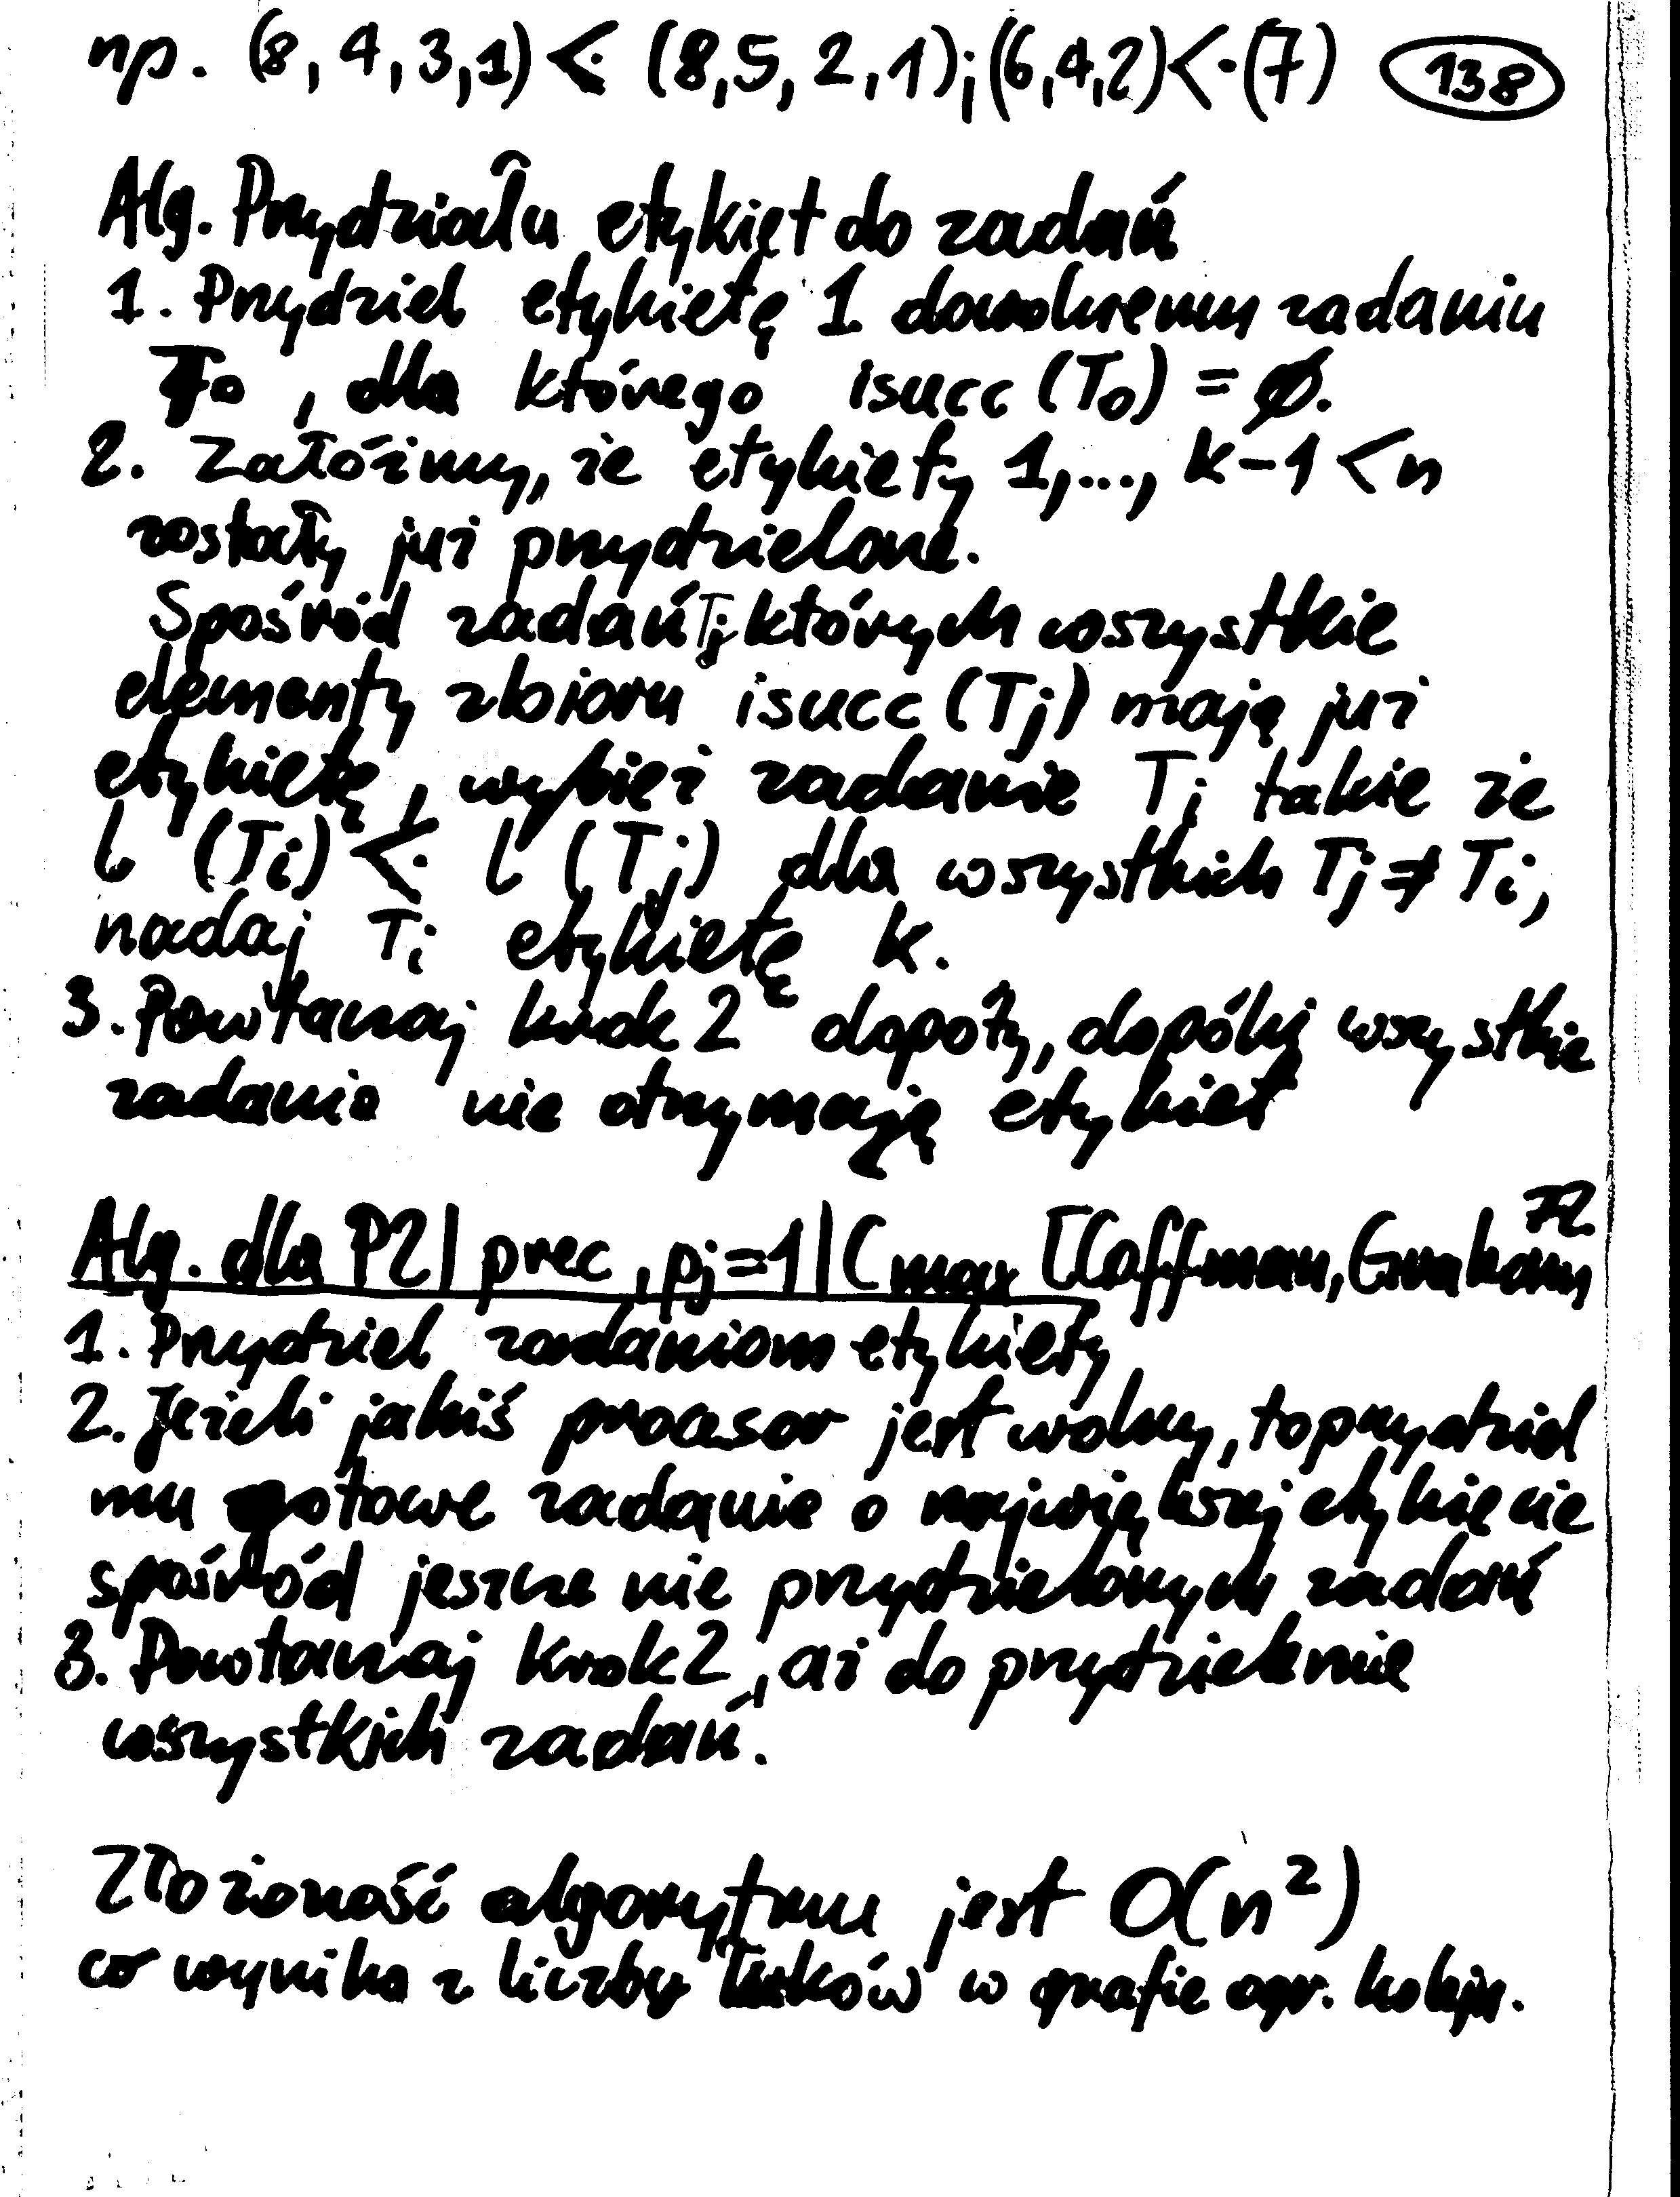 np. (8, 4, 3, 1) ⋖ (8, 5, 2, 1); (6, 4, 2) ⋖ (7) 138
Alg. Przydziału etykiet do zadań
1. Przydziel etykietę 1 dowolnemu zadaniu
T₀, dla którego isucc (T₀) = ∅.
2. Załóżmy, że etykiety 1,..., k-1 < n
zostały już przydzielone.
Spośród zadań Tj których wszystkie
elementy zbioru isucc (Tj) mają już
etykietę, wybierz zadanie Ti takie że
l (Ti) ⋖ l (Tj) dla wszystkich Tj ≠ Ti,
nadaj Ti etykietę k.
3. Powtarzaj krok 2 dopóty, dopóki wszystkie
zadania nie otrzymają etykiet
Alg. dla P2 | prec, pj=1 | Cmax [Coffman, Graham 72
1. Przydziel zadaniom etykiety
2. Jeżeli jakiś procesor jest wolny, to przydziel
mu gotowe zadanie o największej etykiecie
spośród jeszcze nie przydzielonych zadań
3. Powtarzaj krok 2, aż do przydzielenia
wszystkich zadań.
Złożoność algorytmu jest O(n²)
co wynika z liczby łuków w grafie ogr. kolejn.